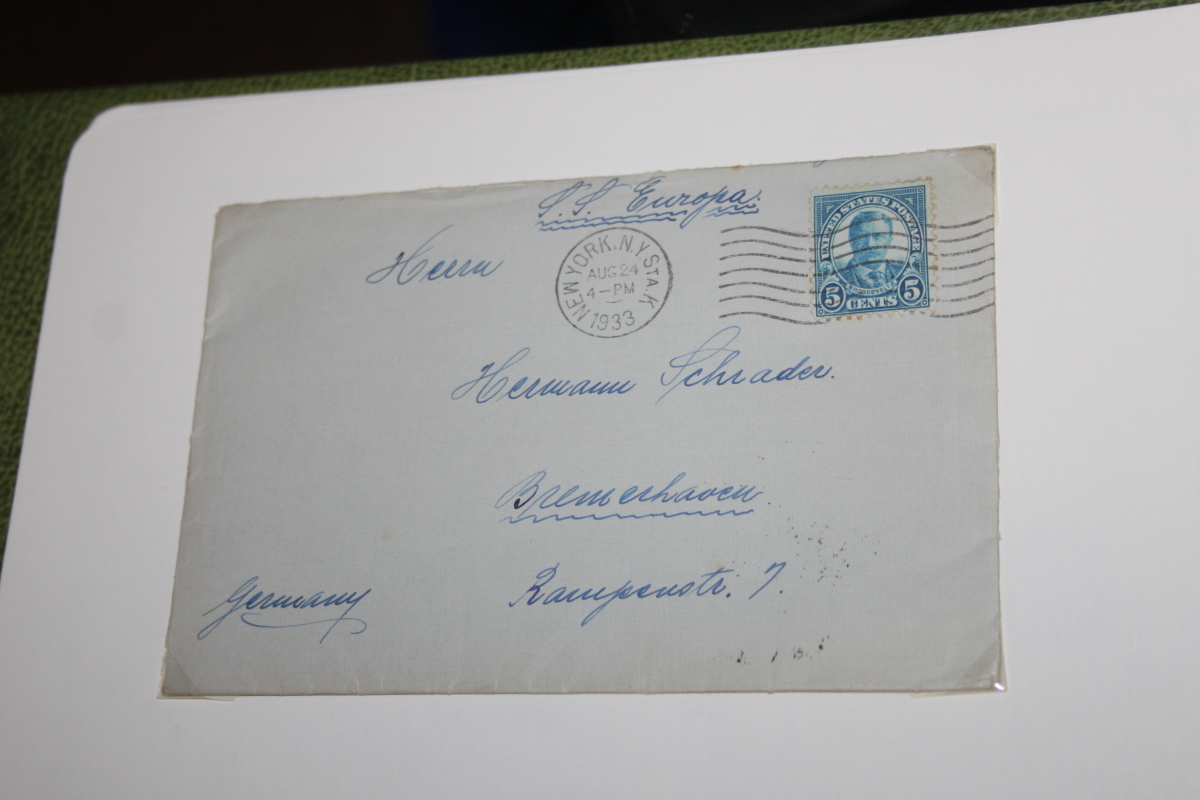 S.S. Europa.
UNITED STATES POSTAGE
ROOSEVELT
5 CENTS 5
NEW YORK, N.Y. STA. K
AUG 24
4-PM
1933
Herrn
Hermann Schrader.
Bremerhaven.
Rampenstr. 7.
Germany